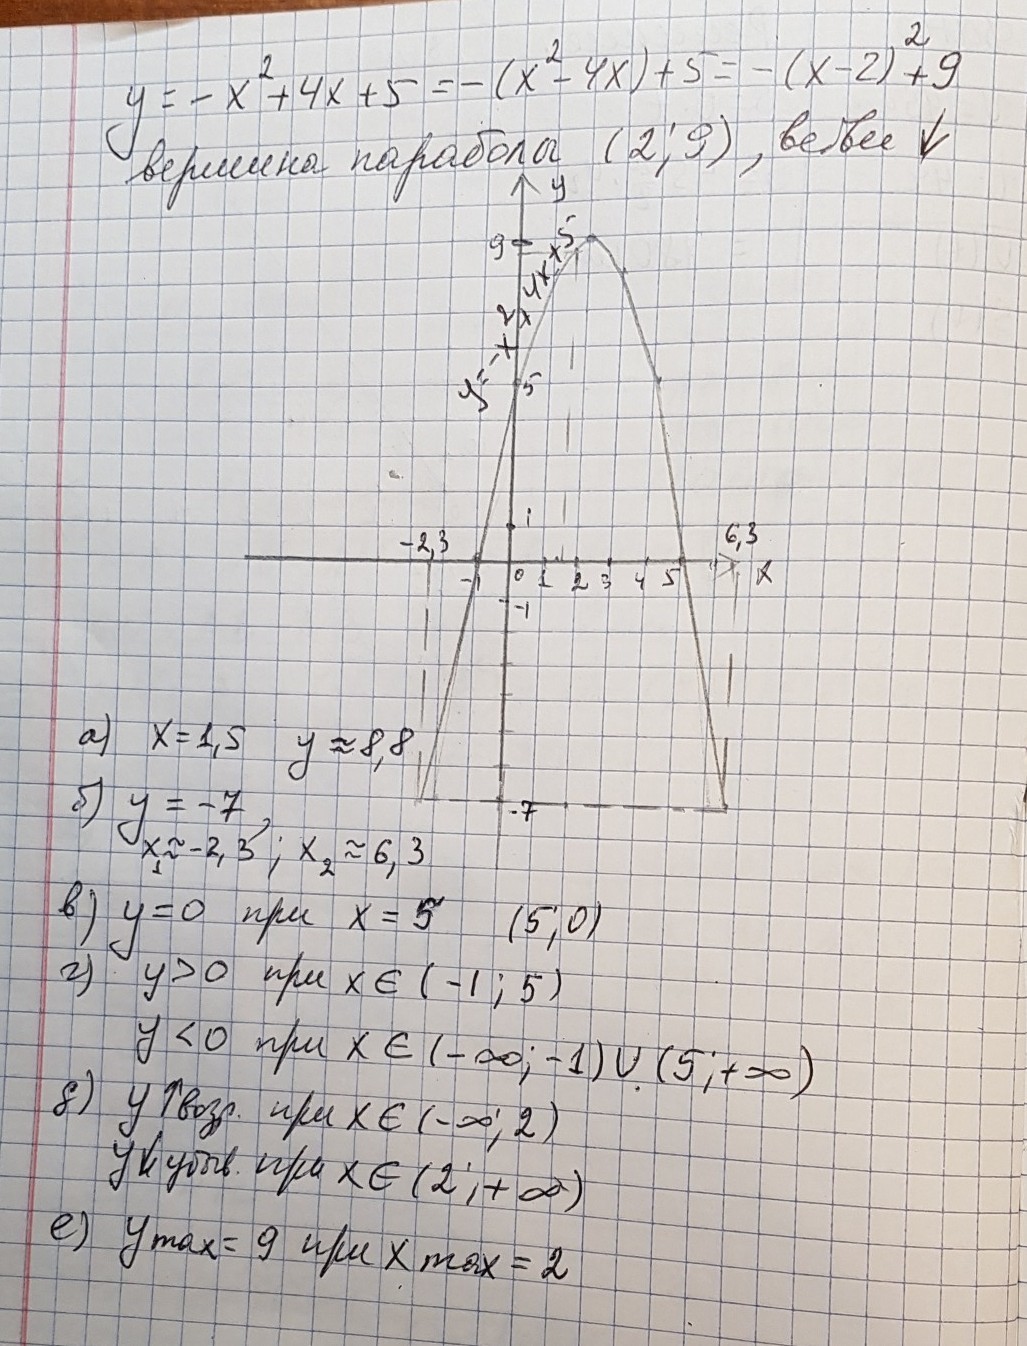 y = -x²+4x+5 = -(x²-4x)+5 = -(x-2)²+9
вершина параболы (2; 9), ветви ↓
y
9
y = -x²+4x+5
5
1
-2,3
6,3
-1 0 1 2 3 4 5 x
-1
-7
а) x = 1,5 y ≈ 8,8
б) y = -7,
x₁ ≈ -2,3 ; x₂ ≈ 6,3
в) y = 0 при x = 5 (5; 0)
г) y > 0 при x ∈ (-1; 5)
y < 0 при x ∈ (-∞; -1) ∪ (5; +∞)
д) y ↑ возр. при x ∈ (-∞; 2)
y ↓ убыв. при x ∈ (2; +∞)
е) y max = 9 при x max = 2